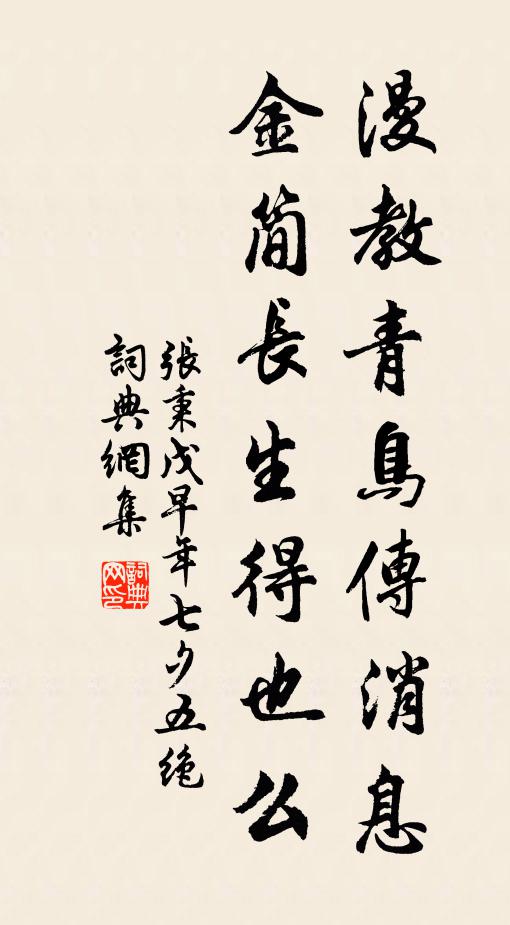 漫教青鳥傳消息
金简長生得也么
張秉戊早年七夕五绝
詞典網集
詞典网印